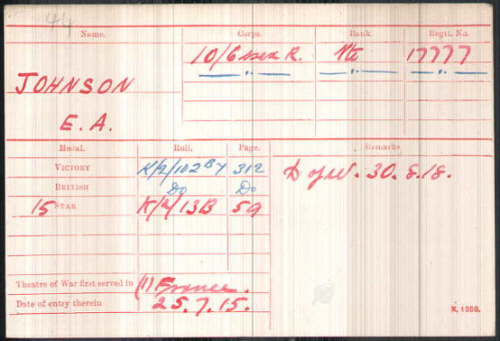 44
Name. Corps. Rank. Regtl. No.
10/Essex R. Pte 17777
JOHNSON
E.A.
Medal. Roll. Page. Remarks.
VICTORY K/2/102B4 312 D of W. 30.8.18.
BRITISH Do Do
15 STAR K/2/13B 59
Theatre of War first served in (1) France.
Date of entry therein 25.7.15.
K. 1380.